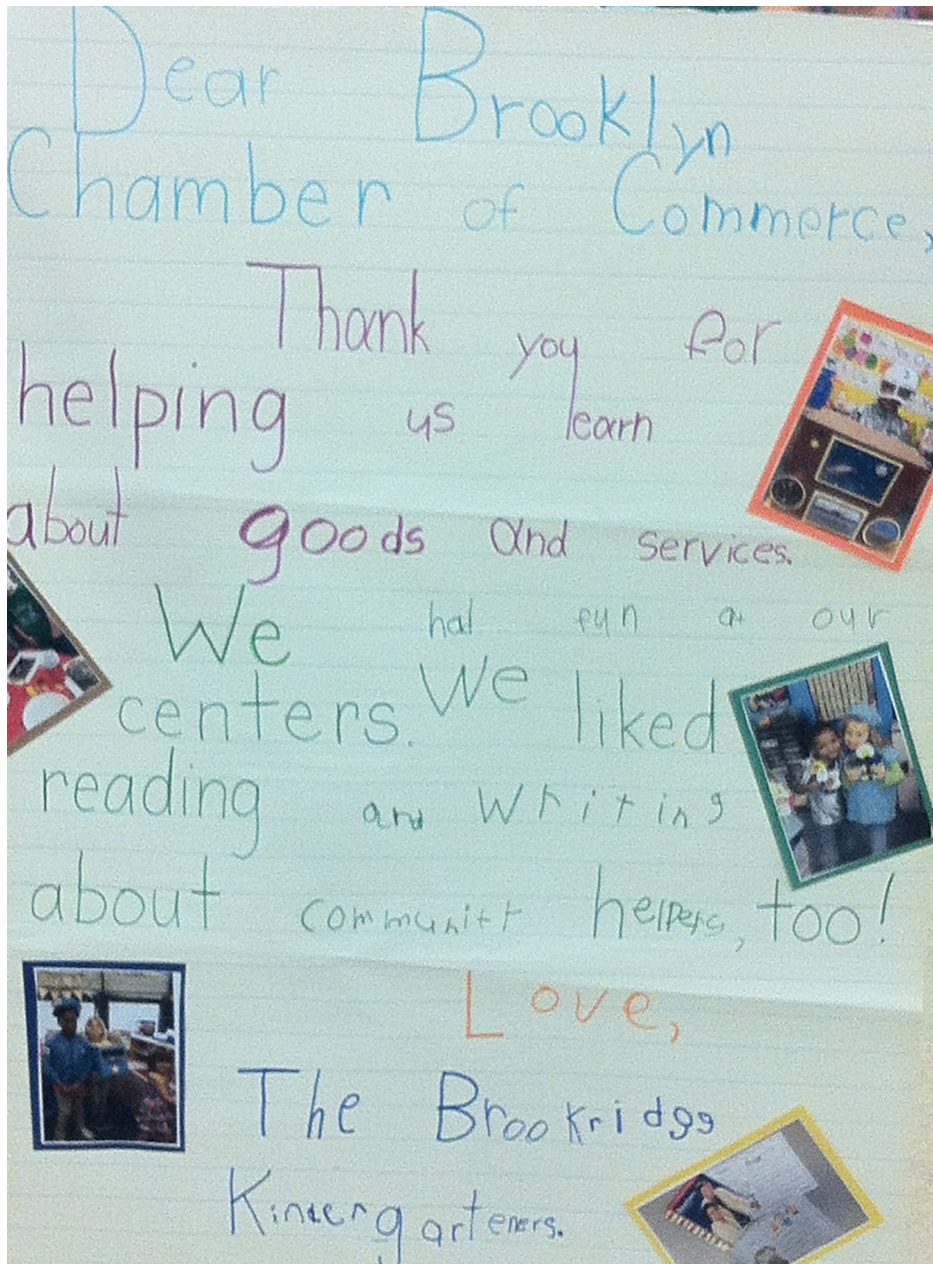 Dear Brooklyn
Chamber of Commerce,
Thank you for
helping us learn
about goods and services.
We had fun at our
centers. We liked
reading and writing
about community helpers, too!
Love,
The Brookridge
Kindergarteners.